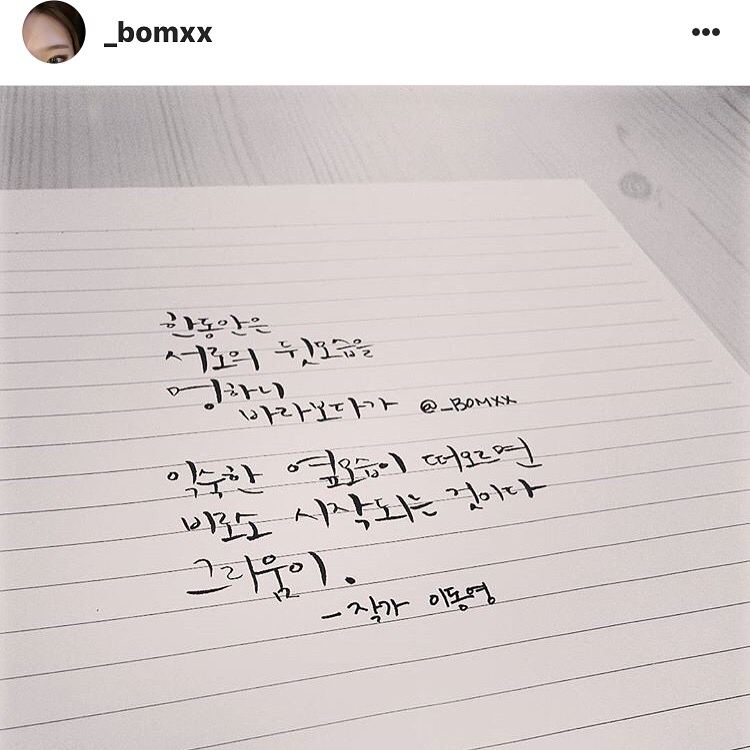 _bomxx
한동안은
서로의 뒷모습을
멍하니
바라보다가 @_BOMXX
익숙한 옆모습이 떠오르면
비로소 시작되는 것이다
그리움이.
- 작가 이동영